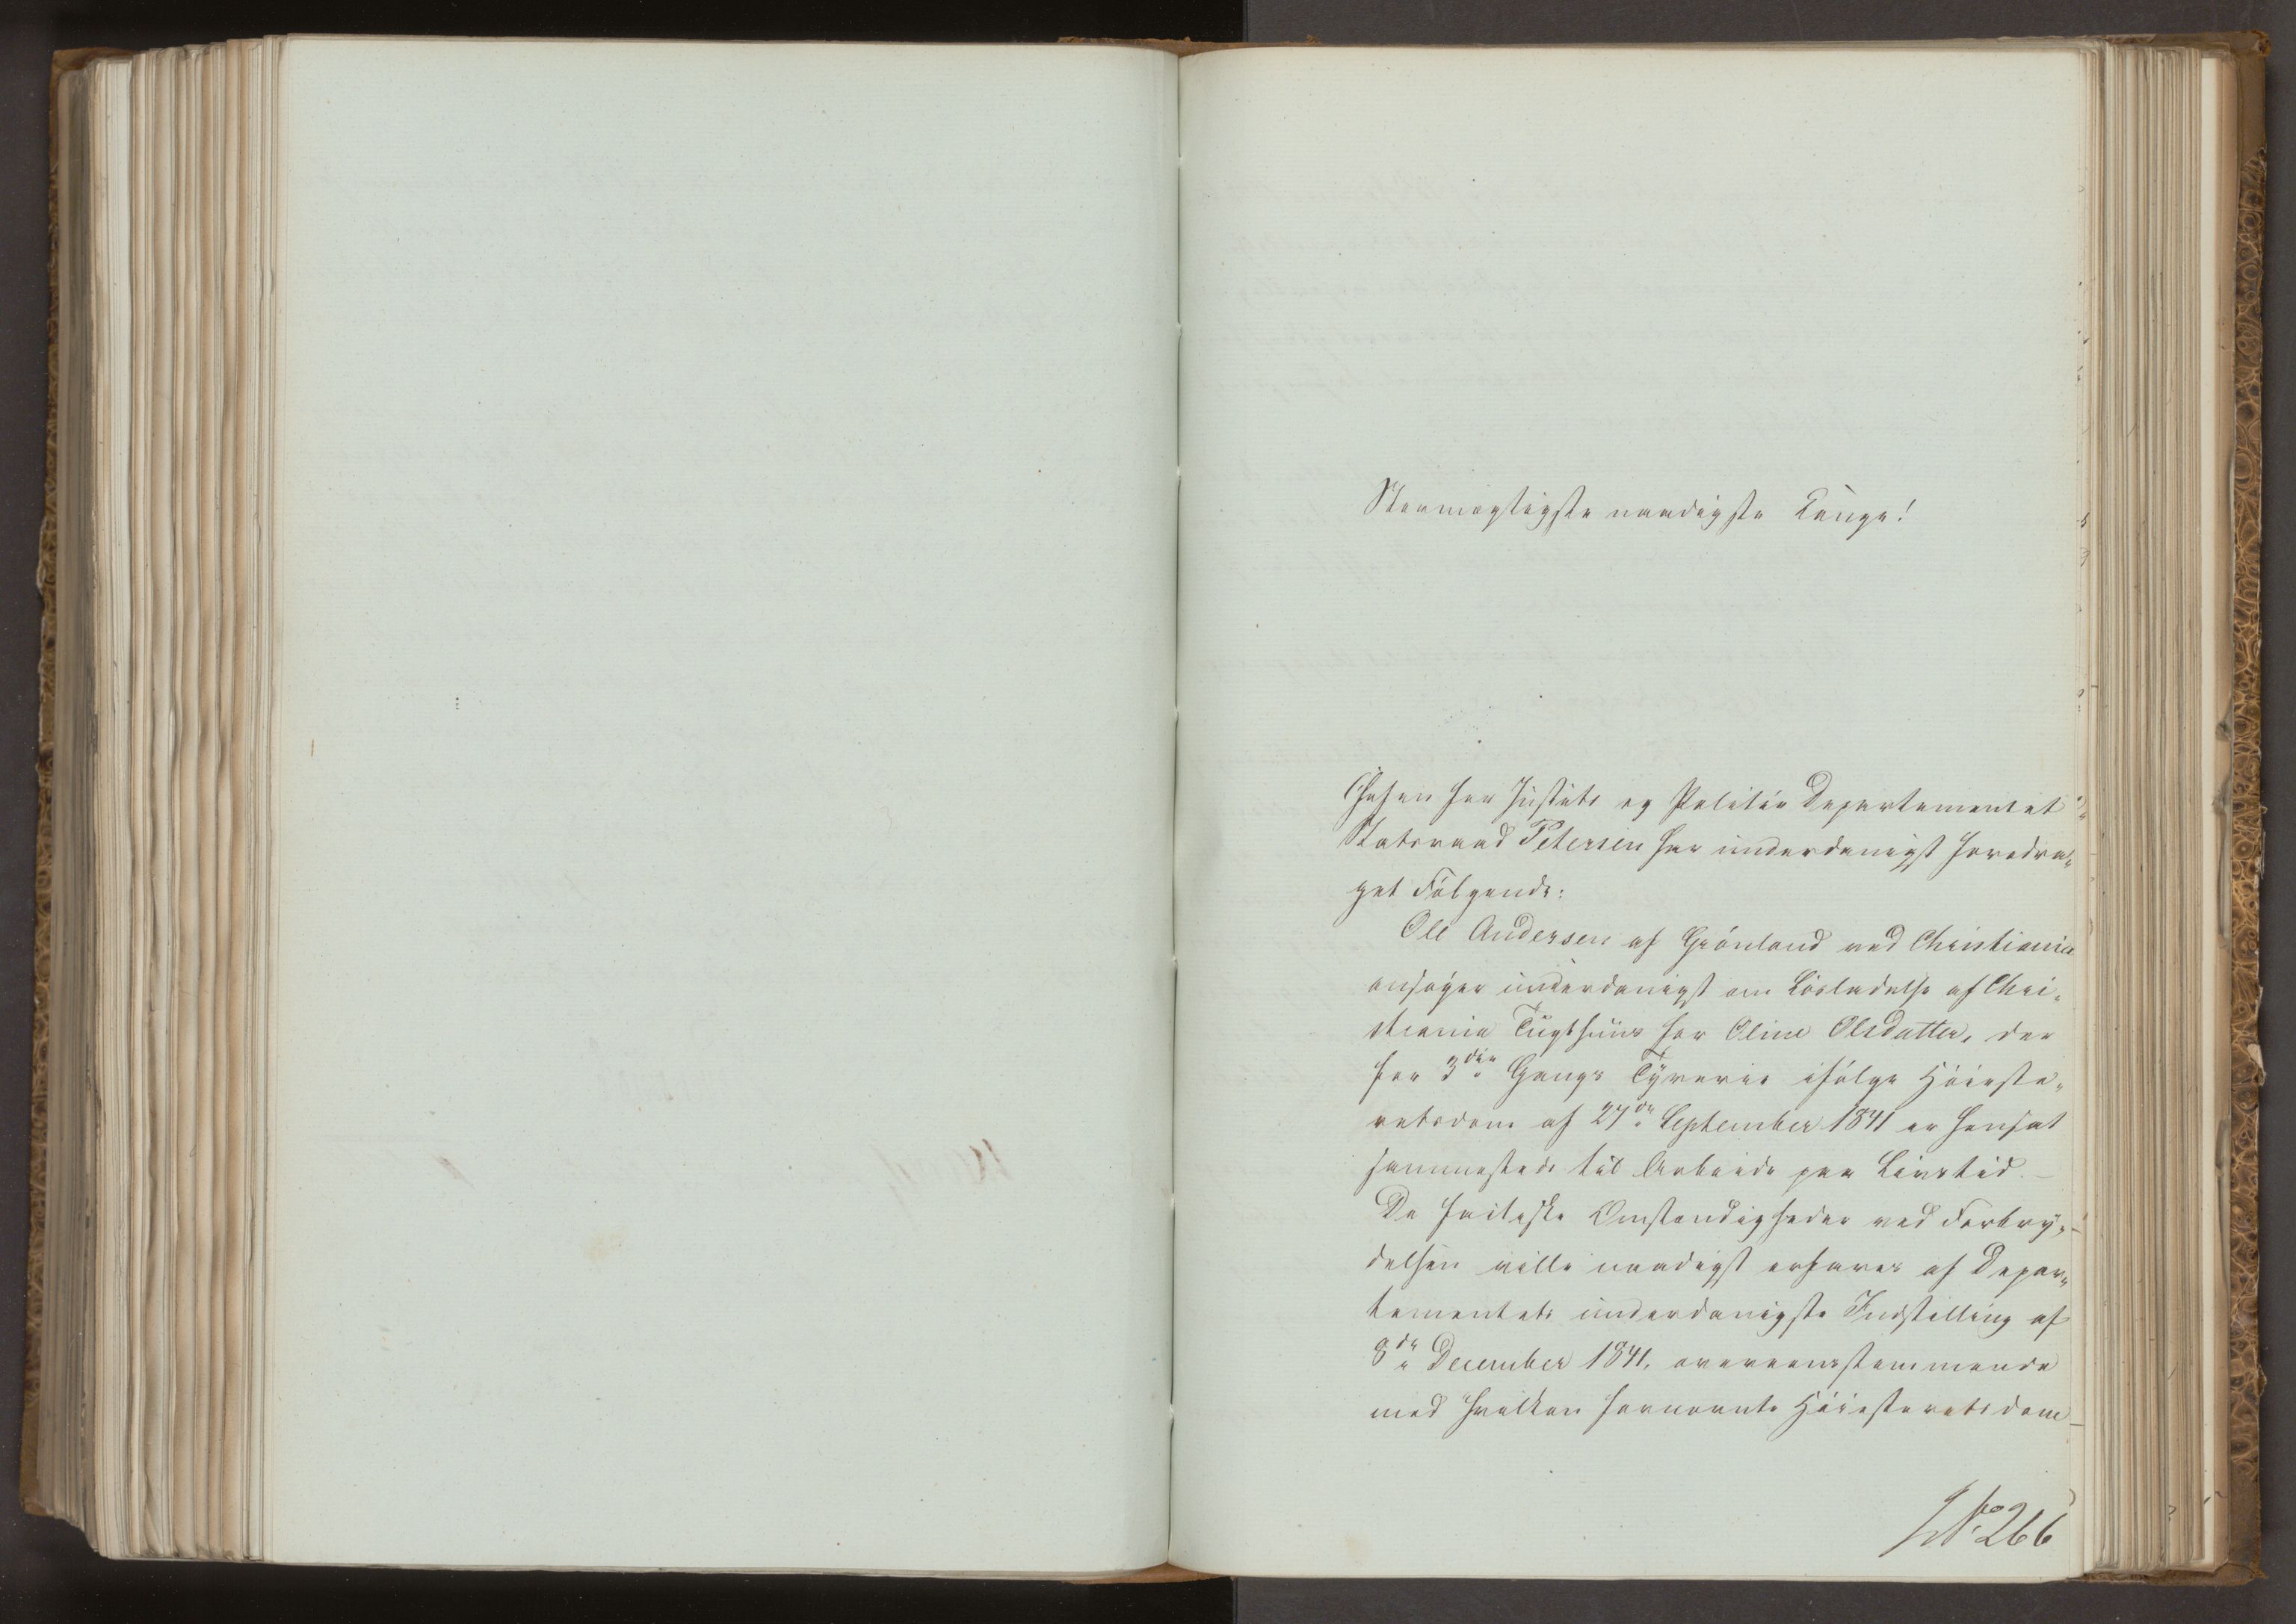 Stormægtigste naadigste Konge!
Chefen for Justits og Politie Departementet
Statsraad Petersen har underdanigst foredra„
get Følgende:
Ole Andersen af Grönland ved Christiania
ansøger underdanigst om Løsladelse af Chri„
stiania Tugthuus for Oline Olsdatter, der
for 3die Gangs Tyverie ifølge Høieste„
retsdom af 27de September 1841 er hensat
sammesteds til Arbeide paa Livstid. –
De factiske Omstændigheder ved Forbry„
delsen ville naadigst erfares af Depar„
tementets underdanigste Indstilling af
8de December 1841, overeensstemmende
med hvilken fornævnte Høiesteretsdom
No 266